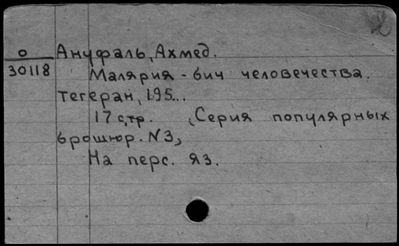 2
О Ануфаль, Ахмед.
30118 Малярия - бич человечества.
Тегеран, 195...
17 стр. , Серия популярных
брошюр. N3,
На перс. яз.